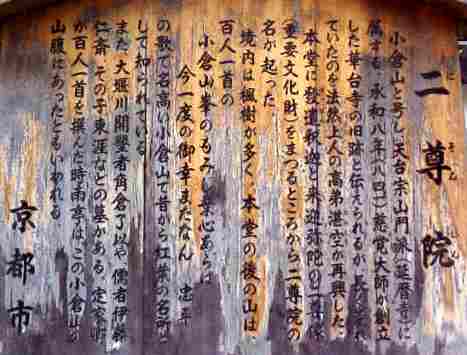 二尊院
に そん いん
小倉山と号し、天台宗山門派(延暦寺)に
属する。承和八年(八四一)慈覚大師が創立
した華台寺の旧跡と伝えられるが、長らく荒れ
ていたのを法然上人の高弟湛空が再興した。
本堂に発遣釈迦と来迎弥陀の二尊像
(重要文化財)をまつるところから二尊院の
名が起った。
境内は楓樹が多く、本堂の後の山は、
百人一首の
小倉山峯のもみじ葉心あらば
今一度の御幸またなん 忠平
の歌で名高い小倉山で昔から紅葉の名所と
して知られている。
また、大堰川開鑿者角倉了以や、儒者伊藤
仁斎、その子東涯などの墓がある。定家卿
が百人一首を撰んだ時雨亭は、この小倉山の
山腹にあったともいわれる。
京都市